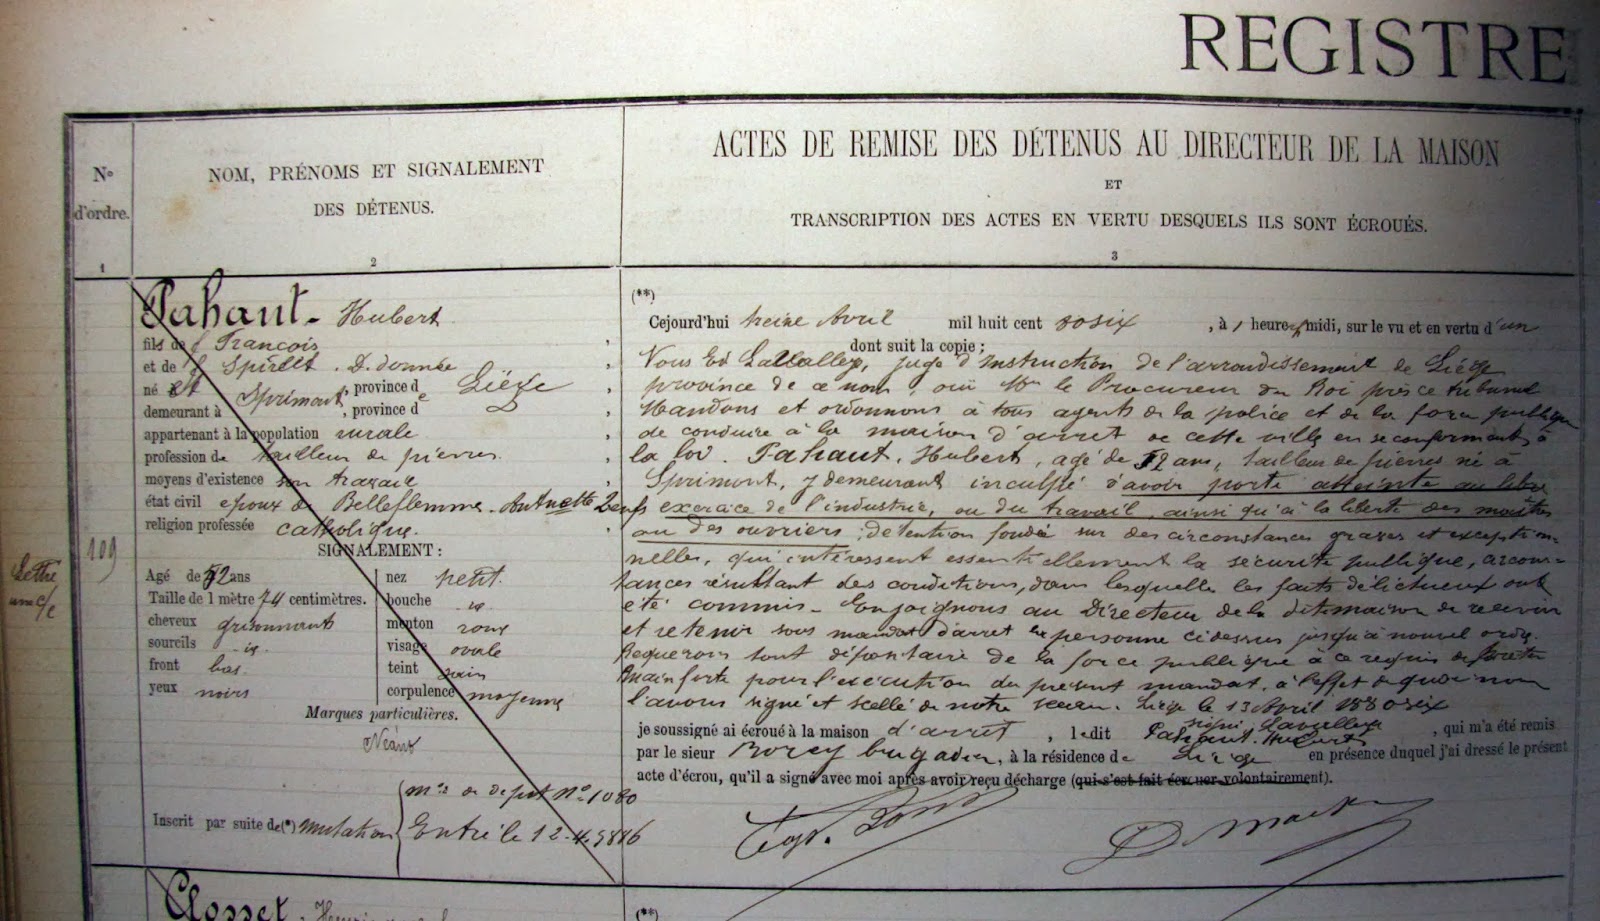 REGISTRE
N° d'ordre.
NOM, PRÉNOMS ET SIGNALEMENT
DES DÉTENUS.
ACTES DE REMISE DES DÉTENUS AU DIRECTEUR DE LA MAISON
ET
TRANSCRIPTION DES ACTES EN VERTU DESQUELS ILS SONT ÉCROUÉS.
1
2
3
109
Lettre
Pahaut. Hubert
fils de François
et de Spirlet. D.donnée
né à Sprimont, province de Liège
demeurant à , province d
appartenant à la population rurale
profession de tailleur de pierres
moyens d'existence son travail
état civil époux de Belleflemme. Antnette 2 enfs
religion professée catholique.
SIGNALEMENT :
Agé de 52 ans
Taille de 1 mètre 74 centimètres.
cheveux grisonnants
sourcils id
front bas
yeux noirs
nez petit.
bouche id
menton rond
visage ovale
teint sain
corpulence moyenne
Marques particulières.
Néant
Inscrit par suite de (*) mutation
mat de depot N° 1080
Entré le 12.4.1886
(**)
Cejourd'hui treize Avril mil huit cent 80six , à heure midi, sur le vu et en vertu d'un
dont suit la copie :
Nous juge d'Instruction de l'arrondissement de Liège
province de ce nom, ouï Mr le Procureur du Roi près ce tribunal
Mandons et ordonnons à tous agents de la police et de la force publique
de conduire à la maison d'arret de cette ville en se conformant à
la loi. Pahaut. Hubert, agé de 52 ans, tailleur de pierres né à
Sprimont, y demeurant inculpé d'avoir porté atteinte au libre
exercice de l'industrie, ou du travail, ainsi qu'à la liberté des maitres
ou des ouvriers; détention fondée sur des circonstances graves et exception-
nelles, qui intéressent essentiellement la sécurité publique, circons-
tances résultant des conditions, dans lesquelles les faits délictueux ont
été commis - Enjoignons au Directeur de la dite maison de recevoir
et retenir sous mandat d'arret la personne ci dessus jusqu'à nouvel ordre.
Requerons tout dépositaire de la force publique à ce requis de preter
Main forte pour l'exécution du présent mandat, à l'effet de quoi nous
l'avons signé et scellé de notre sceau. Liège le 13 Avril 1880six
signé
je soussigné ai écroué à la maison d'arret , ledit Pahaut. Hubert , qui m'a été remis
par le sieur brigadier, à la résidence de Liège en présence duquel j'ai dressé le présent
acte d'écrou, qu'il a signé avec moi après avoir reçu décharge (qui s'est fait écrouer volontairement).
Closset. Henri
(**)